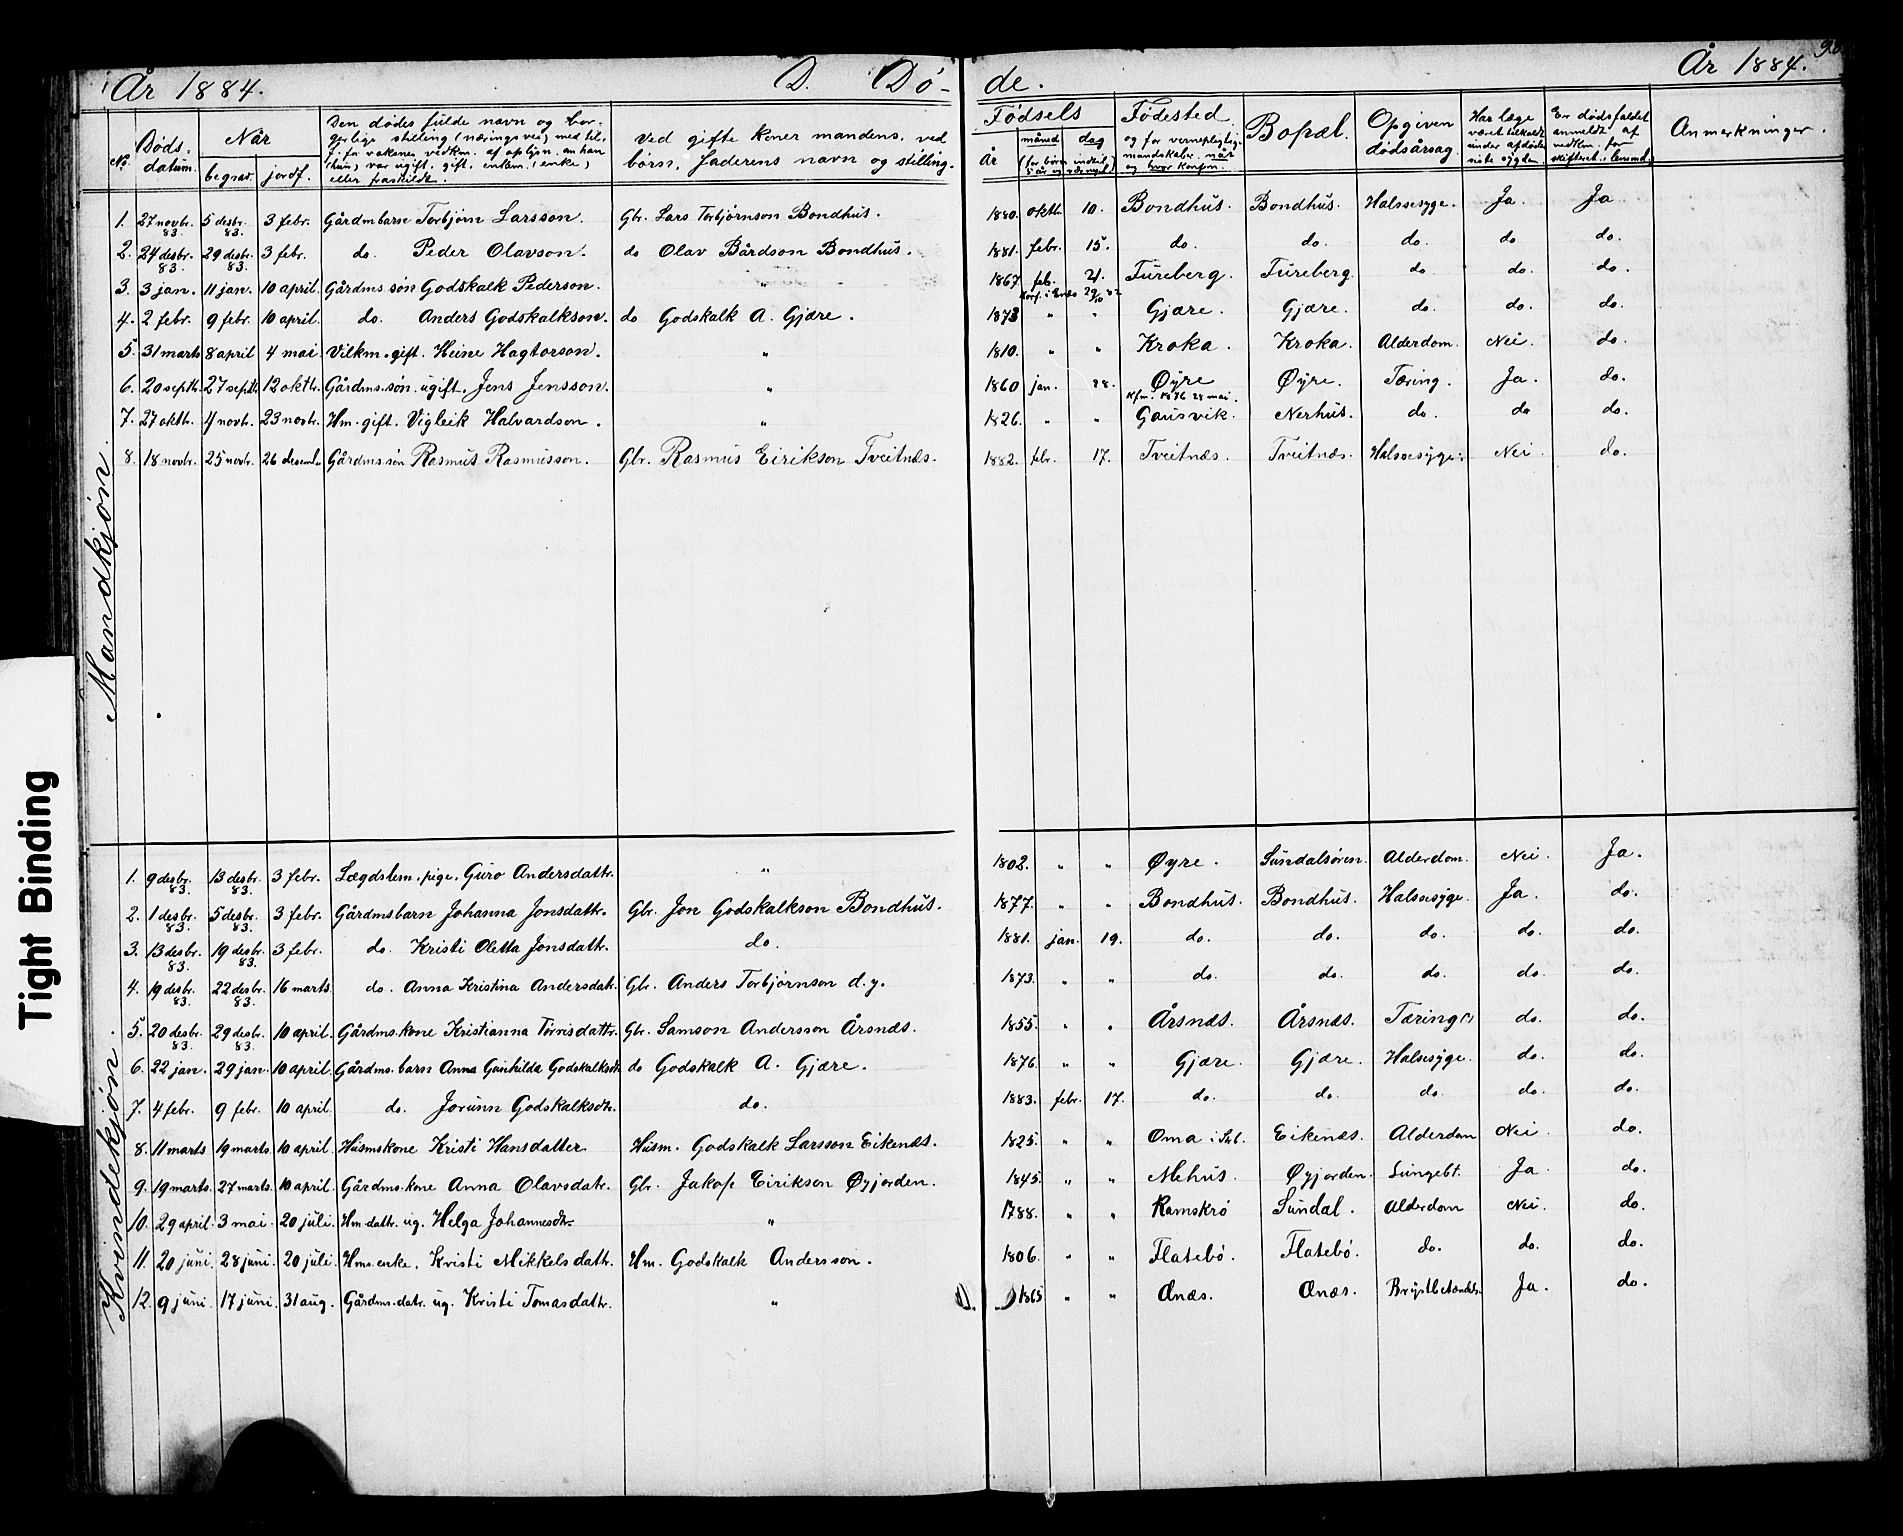 År 1884. D. Dö- de. År 1884.
Tight Binding
No. Døds- datum. Når begrav. jordf. Den dødes fulde navn og bor- gerlige stilling (næringsvei) Ved gifte koner mandens, ved børn, faderens navn og stilling. Fødsels år måned dag Fødested og for vernepligtig mandskabr. når og hvor konfirm. Bopæl. Opgiven dødsårsag Har læge været tilkaldt under afdødes siste sygdom Er dødsfaldet anmeldt af vedkm. for skifteret. l. lensmd. Anmerkninger.
Mandkjøn
1. 27 novbr. 83. 5 desbr. 83. 3 febr. Gårdmbarn Torbjørn Larsson. Gbr. Lars Torbjørnson Bondhus. 1880. oktb. 10. Bondhus. Bondhus. Halssesyge. Ja Ja
2. 24 desbr. 83. 29 desbr. 83. 3 febr. do. Peder Olavson. do Olav Bårdson Bondhus. 1881. febr. 15. do. do. do. do do.
3. 3 jan. 11 jan. 10 april. Gårdms søn Godskalk Pederson. " 1867 feb. 21. Fureberg. Fureberg do do. do.
4. 2 febr. 9 febr. 10 april. do. Anders Godskalkson. do Godskalk A. Gjære. 1873 " " Gjære. Gjære. do. do. do.
5. 31 marts 8 april 4 mai Vilkm. gift. Heine Hagtorson. " 1810. " " Kroka. Kroka. Alderdom. Nei. do.
6. 20 septb. 27 septb. 12 oktb. Gårdms. søn. ugift. Jens Jensson. " 1860 jan. 28. Øyre Kfm. 1876 28 mai. Øyre. Tæring. Ja. do.
7. 27 oktbr. 4 novbr. 23 novbr. Hm. gift. Vigleik Halvardson. " 1826. " " Gausvik. Nerhus. do. do do.
8. 18 novbr. 25 novbr. 26 desemb. Gårdms. søn Rasmus Rasmusson. Gbr. Rasmus Eirikson Tveitnæs. 1882. febr. 17. Tveitnæs. Tveitnæs. Halssesyge. Nei do.
Kvindekjøn.
1. 9 desbr. 83. 13 desbr. 83. 3 febr. Lægdslem. pige. Guro Andersdattr. " 1802. " " Øyre. Sundalsøren. Alderdom. Nei. Ja.
2. 1 desbr. 83. 5 desbr. 83. 3 febr. Gårdmsbarn Johanna Jonsdattr. Gbr. Jon Godskalkson Bondhus. 1877. " " Bondhus. Bondhus. Halsesyge. Ja. do.
3. 13 desbr. 83. 19 desbr. 83. 3 febr. do. Kristi Oletta Jonsdattr. do. 1881. jan. 19. do. do. do. do. do.
4. 19 desbr. 83. 22 desbr. 83. 16 marts. do. Anna Kristina Andersdatr. Gbr. Anders Torbjørnson d.y. 1873. " " do. do. do. do. do.
5. 20 desbr. 83. 29 desbr. 83. 10 april. Gårdms. kone Kristianna Tørrisdattr. Gbr. Samson Andersson Årsnæs. 1855. " " Årsnæs. Årsnæs. Tæring do. do.
6. 22 jan. 29 jan. 10 april. Gårdms. barn Anna Gunhilda Godskalksdtr do Godskalk A. Gjære. 1876. " " Gjære. Gjære. Halsesyge. do. do.
7. 4 febr. 9 febr. 10 april. do. Jorunn Godskalksdtr. do. 1883. febr. 17. do. do. do. do. do.
8. 11 marts 19 marts. 10 april. Husmskone Kristi Hansdatter Husm. Godskalk Larsson Eikenæs. 1825. " " Oma Eikenæs. Alderdom Nei. do.
9. 19 marts. 27 marts. 10 april. Gårdms. kone Anna Olavsdatr. Gbr. Jakop Eirikson Øyjorden. 1845. " " Mehus. Øyjorden. Lungebt. Ja. do.
10. 29 april. 3 mai. 20 juli. Hm. dattr. ug. Helga Johannesdtr. " 1788. " " Ramskrø Sundal. Alderdom Nei. do.
11. 20 juni. 28 juni. 20 juli. Hms. enke. Kristi Mikkelsdattr. Hm. Godskalk Andersson. 1806. " " Flatebø. Flatebø. do. do. do.
12. 9 juni. 17 juni. 31 aug. Gårdms. datr. ug. Kristi Tomasdattr. " 1865 " " Ænæs. Ænæs. Brystbetændelse Ja. do.